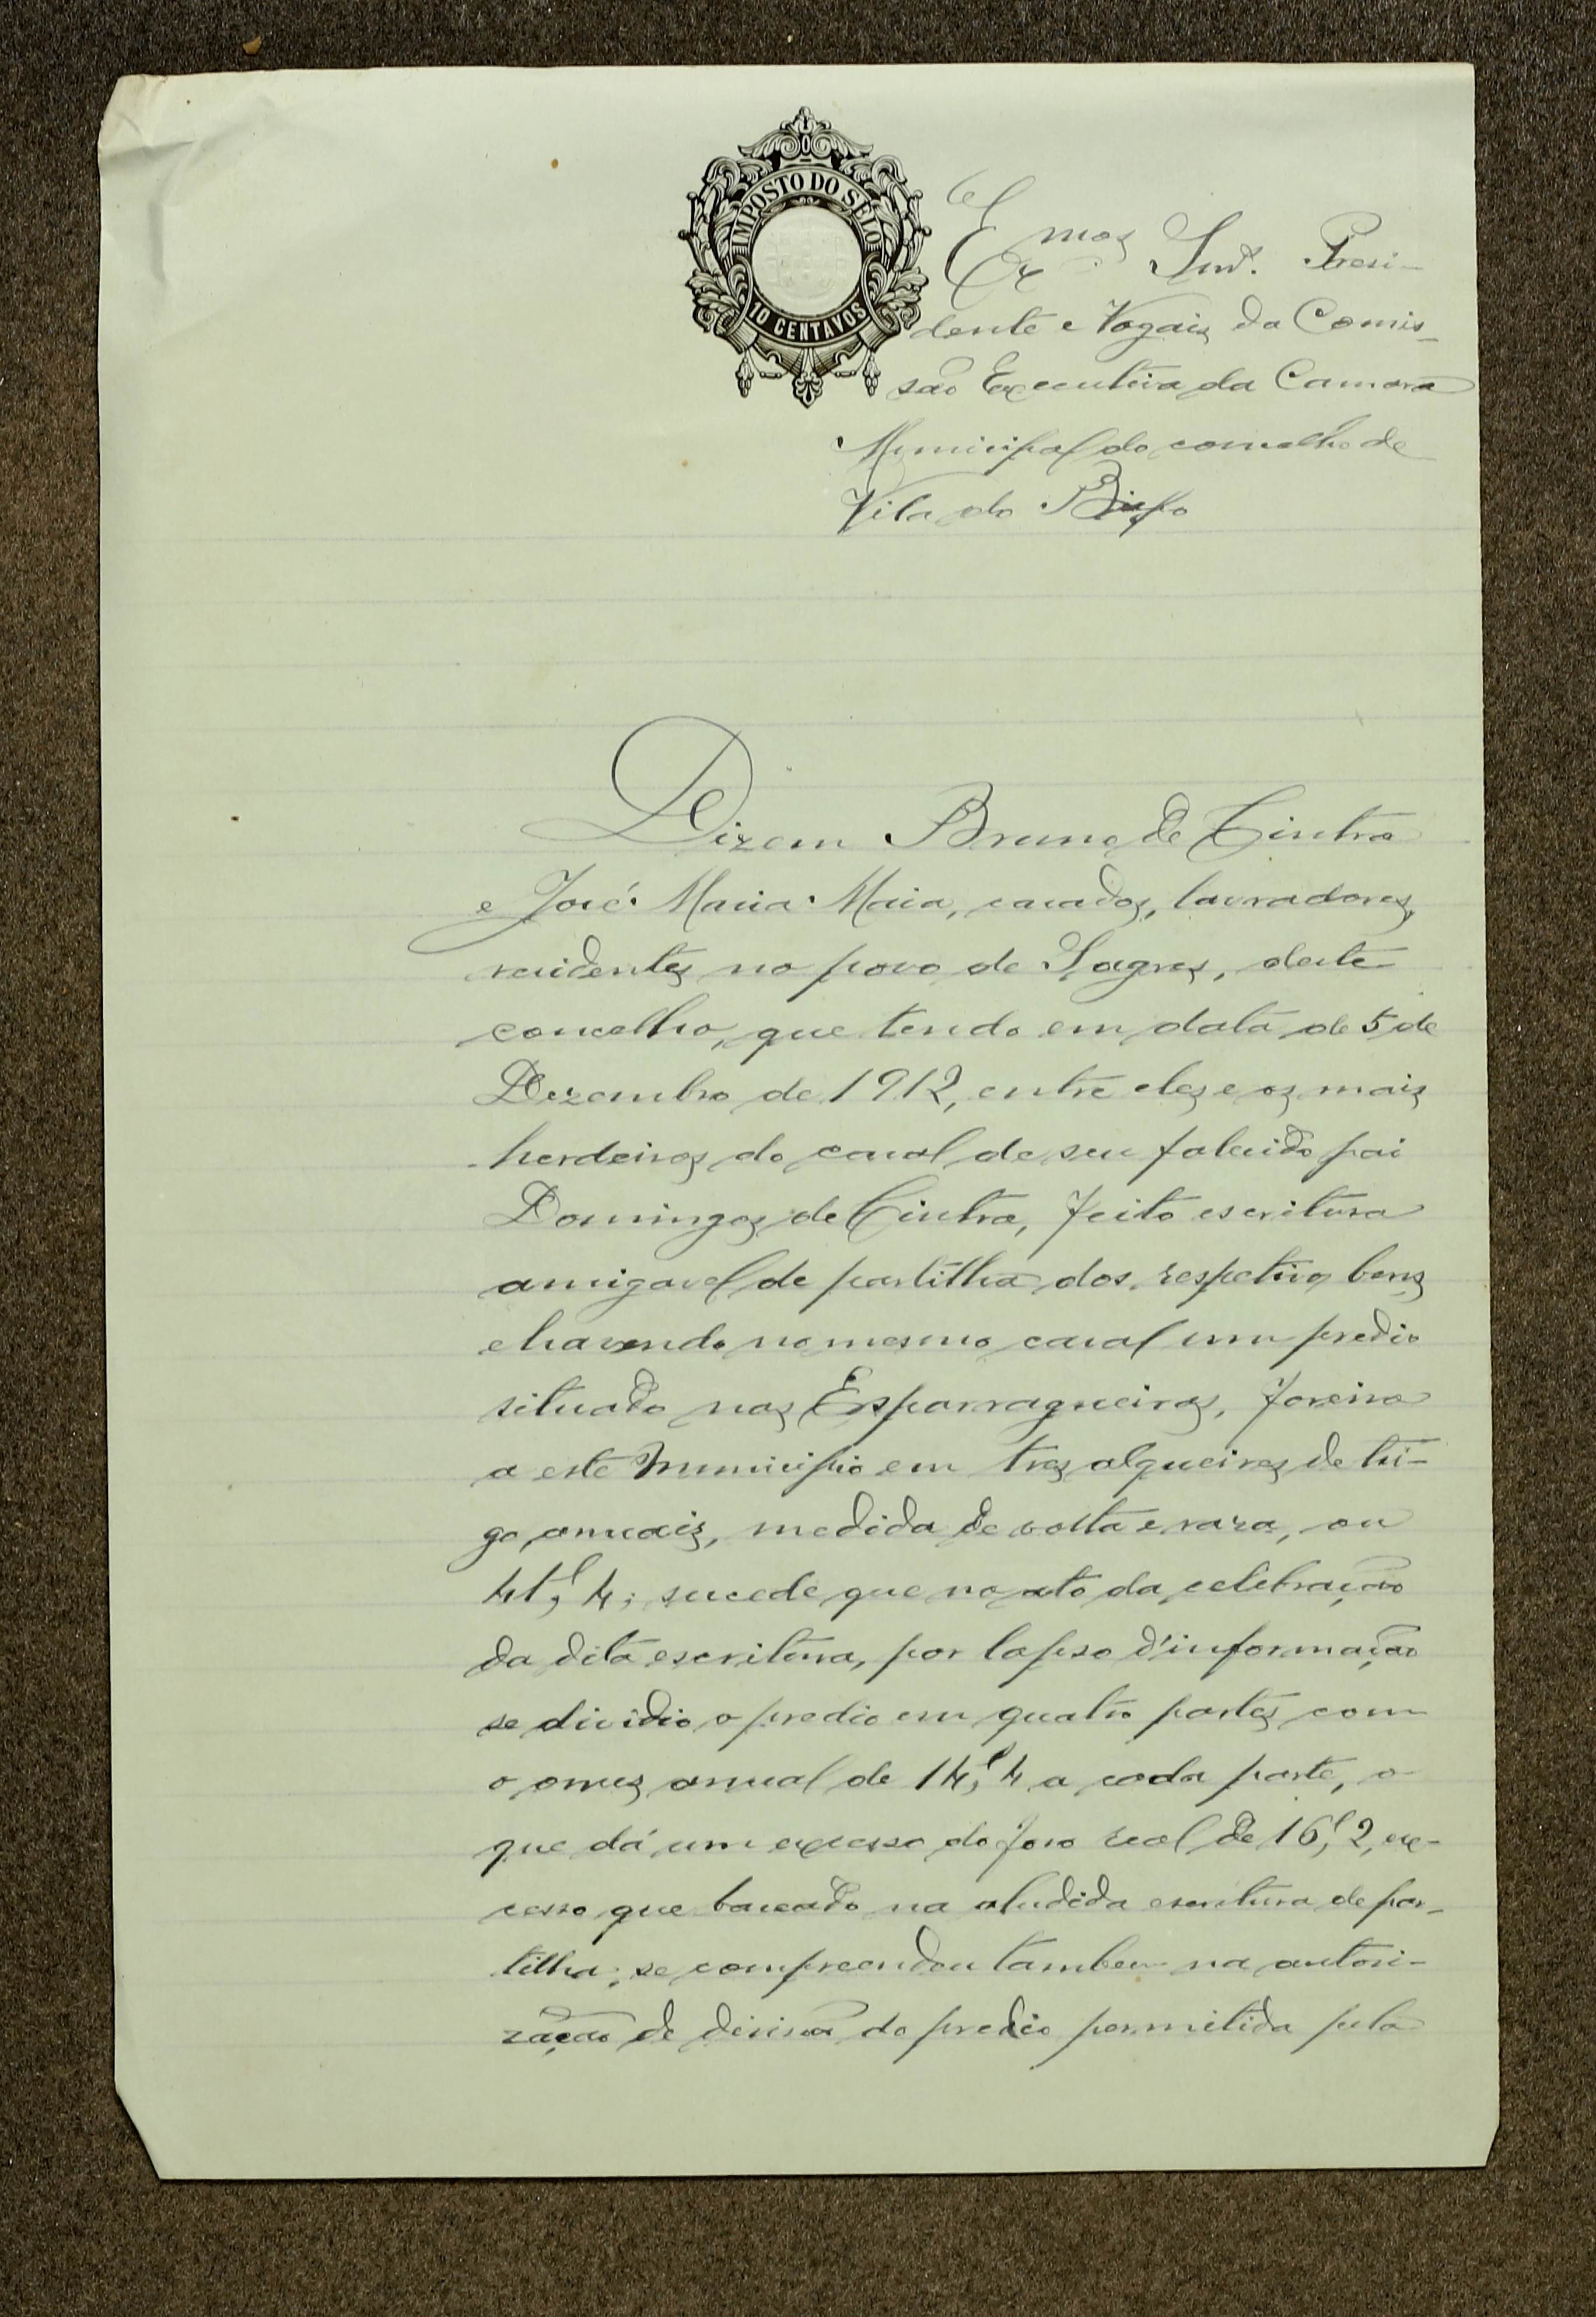 IMPOSTO DO SELO
10 CENTAVOS
Ex.mos Snrs. Presi-
dente e Vogais da Comis-
são Executiva da Camara
Municipal do concelho de
Vila do Bispo
Dizem Bruno de Cintra
e José Maria Maia, casados, lavradores,
residentes no povo de Sagres, deste
concelho, que tendo em data de 5 de
Dezembro de 1912, entre eles e os mais
herdeiros do casal de seu falecido pai
Domingos de Cintra, feito escritura
amigavel de partilha dos respetivos bens
e havendo no mesmo casal um predio
situado nas Esparragueiras, foreiro
a este Municipio em tres alqueires de tri-
go, anuais, medida de volta e raza, ou
41,l4; sucede que no ato da celebração
da dita escritura, por lapso d'informação
se dividio o predio em quatro partes com
o onus anual de 14,l4 a cada parte, o
que dá um excesso do foro real de 16,l2, ex-
cesso que baseado na aludida escritura de par-
tilha, se compreendeu tambem na autori-
zação de divisão do predio permitida pela